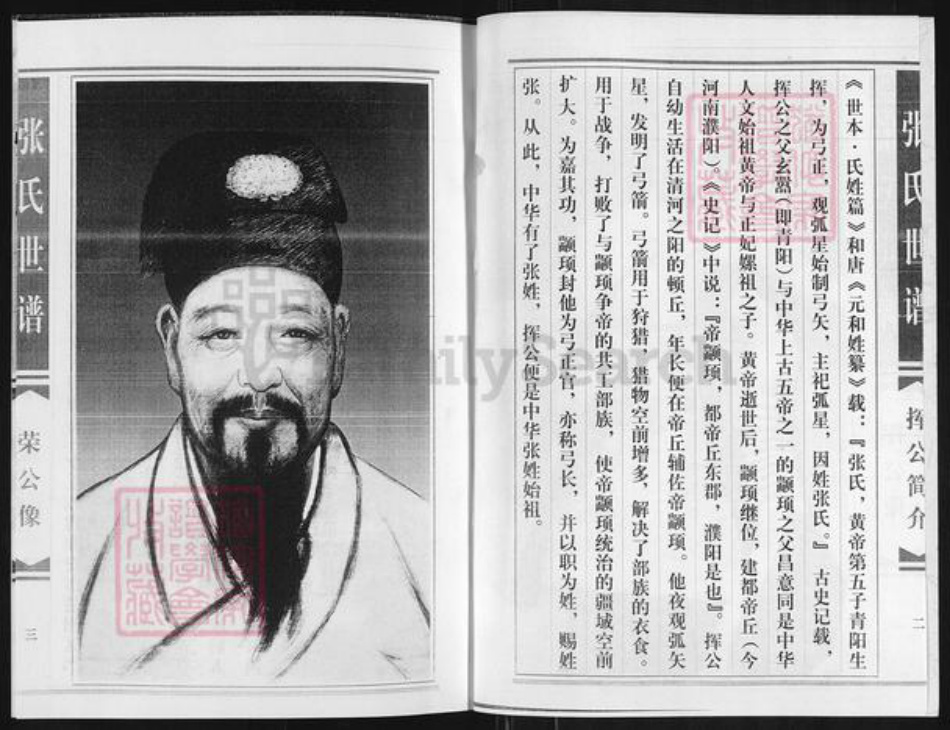 张氏世谱
挥公简介
二
《世本·氏姓篇》和唐《元和姓纂》载：『张氏，黄帝第五子青阳生
挥，为弓正，观弧星始制弓矢，主祀弧星，因姓张氏。』古史记载，
挥公之父玄嚣（即青阳）与中华上古五帝之一的颛顼之父昌意同是中华
人文始祖黄帝与正妃嫘祖之子。黄帝逝世后，颛顼继位，建都帝丘（今
河南濮阳）。《史记》中说：『帝颛顼，都帝丘东郡，濮阳是也』。挥公
自幼生活在清河之阳的顿丘，年长便在帝丘辅佐帝颛顼。他夜观弧矢
星，发明了弓箭。弓箭用于狩猎，猎物空前增多，解决了部族的衣食。
用于战争，打败了与颛顼争帝的共工部族，使帝颛顼统治的疆域空前
扩大。为嘉其功，颛顼封他为弓正官，亦称弓长，并以职为姓，赐姓
张。从此，中华有了张姓，挥公便是中华张姓始祖。
张氏世谱
荣公像
三
FamilySearch